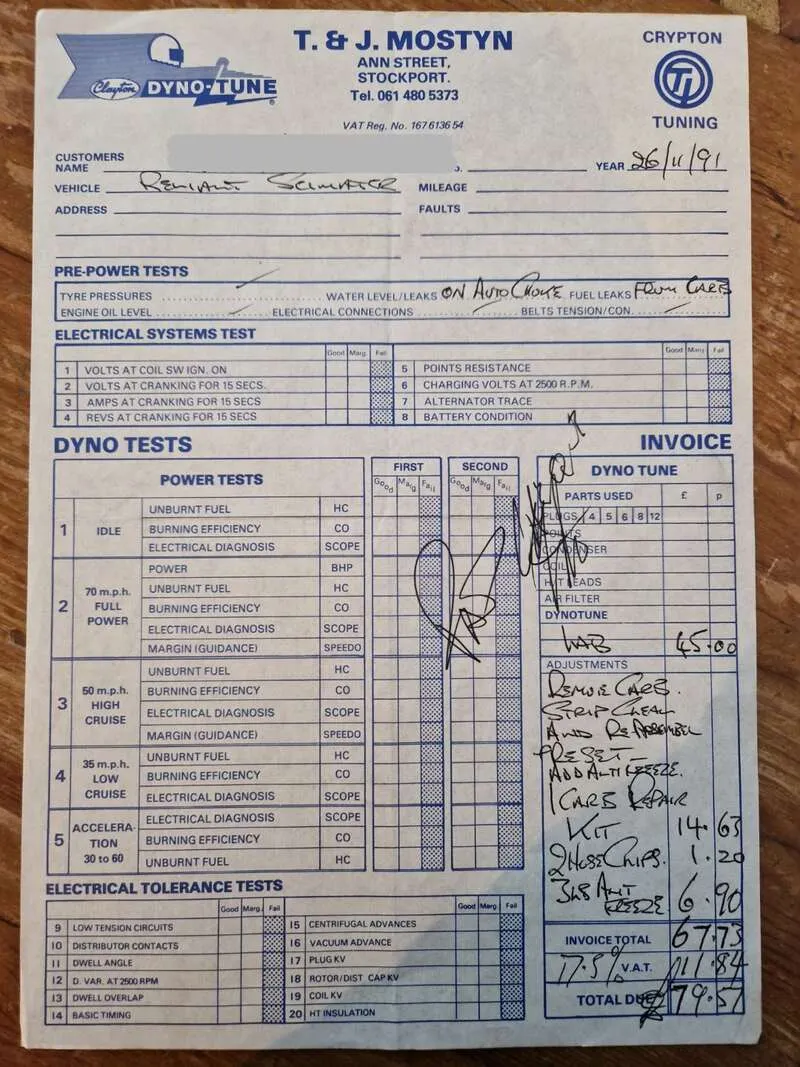 T. & J. MOSTYN
ANN STREET,
STOCKPORT.
Tel. 061 480 5373
VAT Reg. No. 167 6136 54
Clayton DYNO-TUNE
CRYPTON
TUNING
CUSTOMERS
NAME
YEAR 26/11/91
VEHICLE RELIANT SCIMITER
MILEAGE
ADDRESS
FAULTS
PRE-POWER TESTS
TYRE PRESSURES WATER LEVEL/LEAKS ON AUTO CHOKE FUEL LEAKS FROM CARB
ENGINE OIL LEVEL ELECTRICAL CONNECTIONS BELTS TENSION/CON.
ELECTRICAL SYSTEMS TEST
Good Marg. Fail Good Marg. Fail
1 VOLTS AT COIL SW IGN. ON 5 POINTS RESISTANCE
2 VOLTS AT CRANKING FOR 15 SECS. 6 CHARGING VOLTS AT 2500 R.P.M.
3 AMPS AT CRANKING FOR 15 SECS 7 ALTERNATOR TRACE
4 REVS AT CRANKING FOR 15 SECS 8 BATTERY CONDITION
DYNO TESTS
POWER TESTS FIRST SECOND
Good Marg Fail Good Marg Fail
1 IDLE
UNBURNT FUEL HC
BURNING EFFICIENCY CO
ELECTRICAL DIAGNOSIS SCOPE
2 70 m.p.h. FULL POWER
POWER BHP
UNBURNT FUEL HC
BURNING EFFICIENCY CO
ELECTRICAL DIAGNOSIS SCOPE
MARGIN (GUIDANCE) SPEEDO
3 50 m.p.h. HIGH CRUISE
UNBURNT FUEL HC
BURNING EFFICIENCY CO
ELECTRICAL DIAGNOSIS SCOPE
MARGIN (GUIDANCE) SPEEDO
4 35 m.p.h. LOW CRUISE
UNBURNT FUEL HC
BURNING EFFICIENCY CO
ELECTRICAL DIAGNOSIS SCOPE
5 ACCELERA-TION 30 to 60
ELECTRICAL DIAGNOSIS SCOPE
BURNING EFFICIENCY CO
UNBURNT FUEL HC
INVOICE
DYNO TUNE
PARTS USED £ p
PLUGS 4 5 6 8 12
POINTS
CONDENSER
COIL
H/T LEADS
AIR FILTER
DYNOTUNE
LAB 45.00
ADJUSTMENTS
REMOVE CARB.
STRIP CLEAN
AND RE ASSEMBEL
+ RESET
ADD ANTI FREEZE.
1 CARB REPAIR
KIT 14.63
2 HOSE CLIPS. 1.20
ANTI
FREEZE 6.90
INVOICE TOTAL 67.73
17.5% V.A.T. 11.84
TOTAL DUE £ 79.57
ELECTRICAL TOLERANCE TESTS
Good Marg. Fail Good Marg. Fail
9 LOW TENSION CIRCUITS 15 CENTRIFUGAL ADVANCES
10 DISTRIBUTOR CONTACTS 16 VACUUM ADVANCE
11 DWELL ANGLE 17 PLUG KV
12 D. VAR. AT 2500 RPM 18 ROTOR/DIST CAP KV
13 DWELL OVERLAP 19 COIL KV
14 BASIC TIMING 20 HT INSULATION